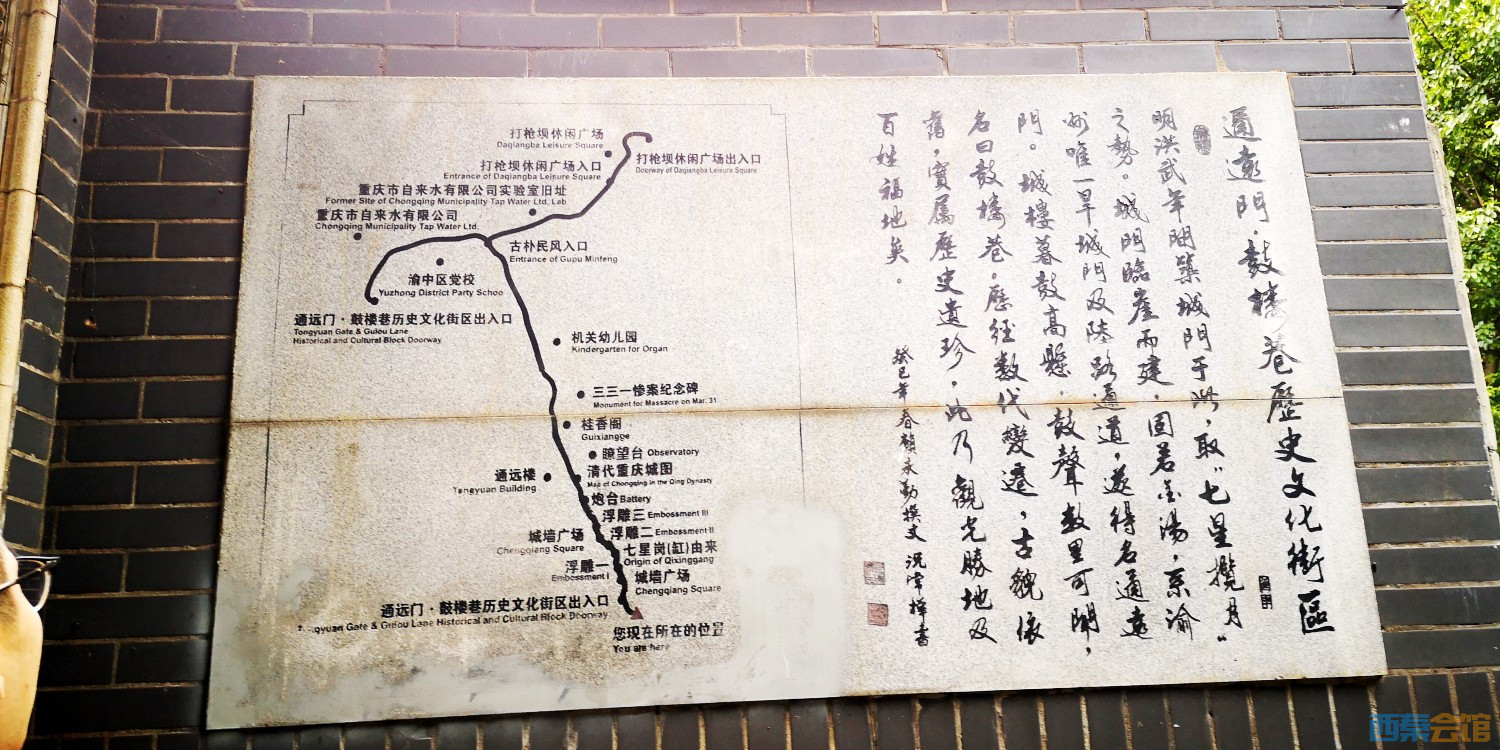 打枪坝休闲广场
Daqiangba Leisure Square
打枪坝休闲广场出入口
Doorway of Daqiangba Leisure Square
打枪坝休闲广场入口
Entrance of Daqiangba Leisure Square
重庆市自来水有限公司实验室旧址
Former Site of Chongqing Municipality Tap Water Ltd. Lab
重庆市自来水有限公司
Chongqing Municipality Tap Water Ltd.
古朴民风入口
Entrance of Gupu Minfeng
渝中区党校
Yuzhong District Party Schoo
通远门·鼓楼巷历史文化街区出入口
Tongyuan Gate & Gulou Lane
Historical and Cultural Block Doorway
机关幼儿园
Kindergarten for Organ
三三一惨案纪念碑
Monument for Massacre on Mar. 31
桂香阁
Guixiangge
瞭望台 Observatory
通远楼
Tongyuan Building
清代重庆城图
Map of Chongqing in the Qing Dynasty
炮台 Battery
浮雕三 Embossment III
浮雕二 Embossment II
城墙广场
Chengqiang Square
七星岗(缸)由来
Origin of Qixinggang
浮雕一
Embossment I
城墙广场
Chengqiang Square
通远门·鼓楼巷历史文化街区出入口
Tongyuan Gate & Gulou Lane Historical and Cultural Block Doorway
您现在所在的位置
You are here
通遠門·鼓樓巷歷史文化街區
明洪武年間築城門于此，取“七星攬月”
之勢。城門臨崖而建，固若金湯，系渝
州唯一旱城門及陸路通道，遂得名通遠
門。城樓暮鼓高懸，鼓聲數里可聞，
名曰鼓樓巷。歷經數代變遷，古貌依
舊，實屬歷史遺珍，此乃觀光勝地及
百姓福地矣。
癸巳年春 永勤撰文 書
西秦会馆